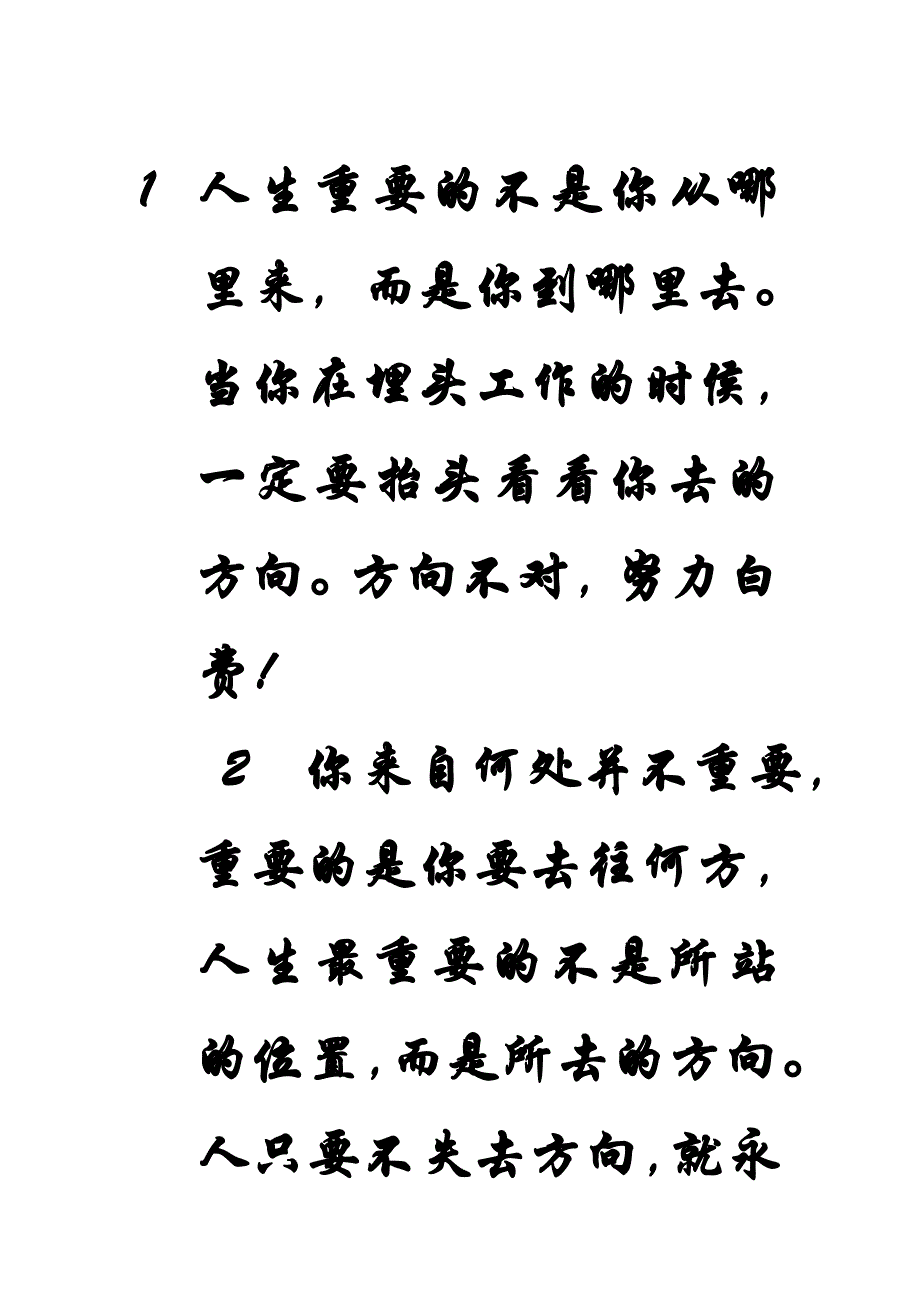 1 人生重要的不是你从哪
里来，而是你到哪里去。
当你在埋头工作的时侯，
一定要抬头看看你去的
方向。方向不对，努力白
费！
2 你来自何处并不重要，
重要的是你要去往何方，
人生最重要的不是所站
的位置，而是所去的方向。
人只要不失去方向，就永